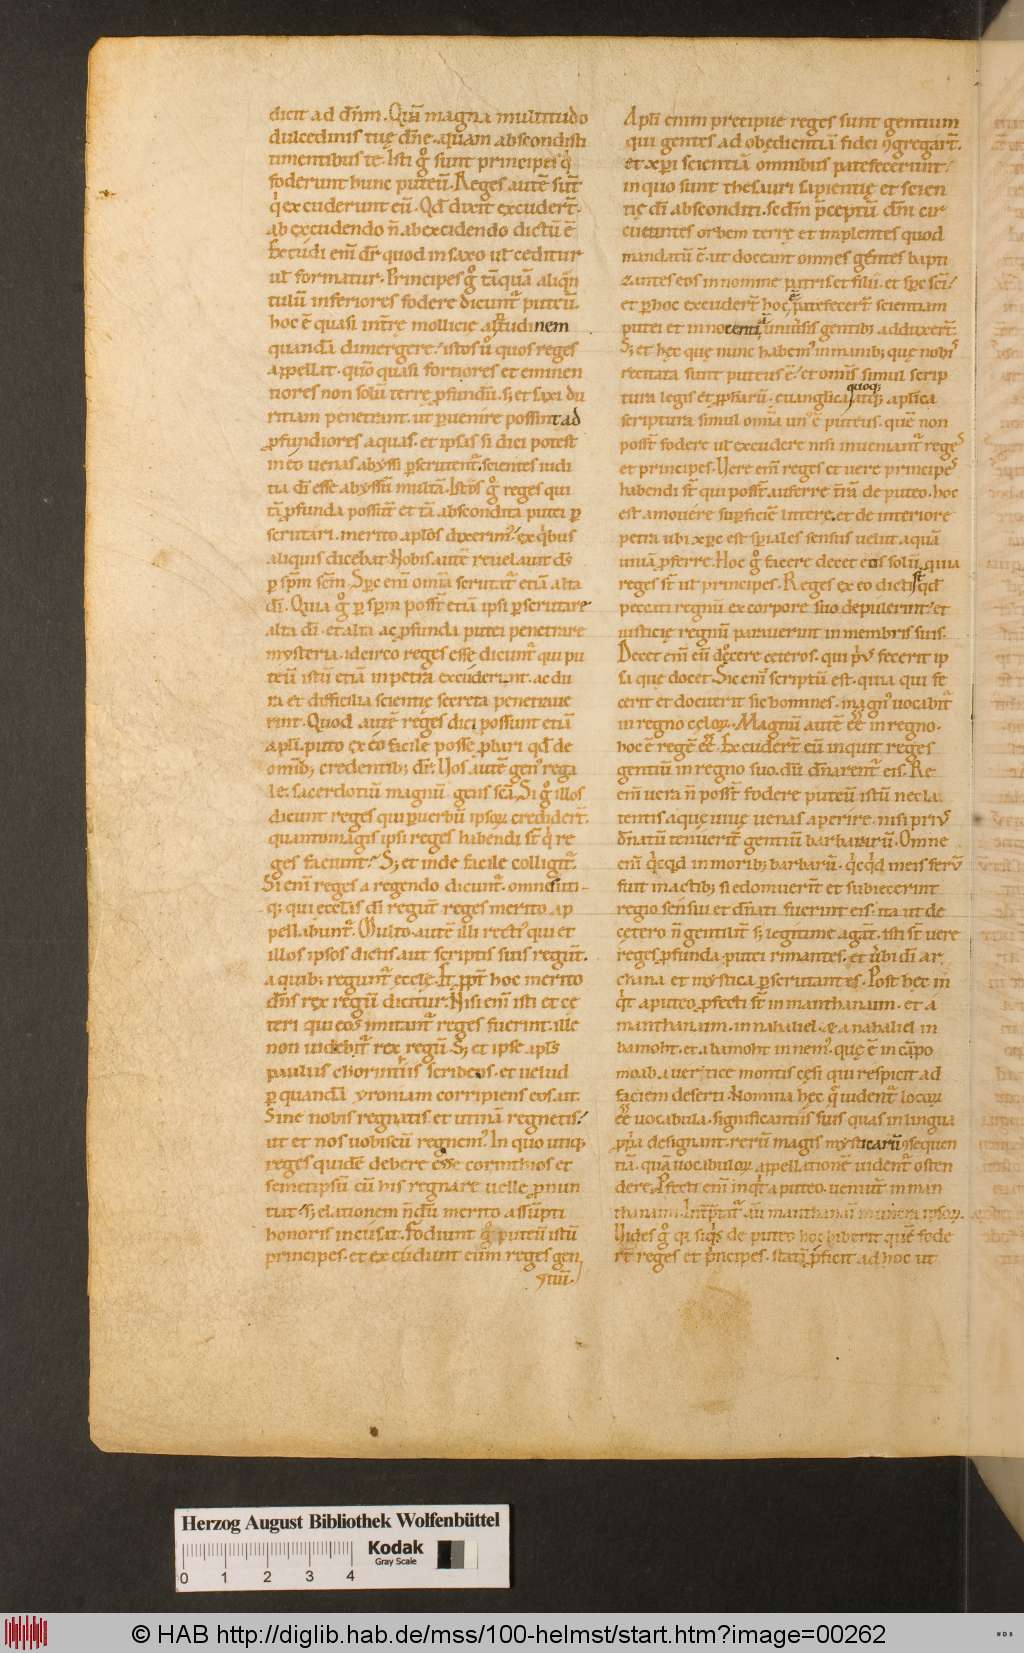 dicit ad dñm. Quā magna multitudo
dulcedinis tuę dñe. quam abscondisti
timentibus te. Isti gͦ sunt principes qͥ
foderunt hunc puteū. Reges autē sūt
qͥ excuderunt eū. Qd̄ dixit excudert̄.
ab excudendo n̄ ab excidendo dictū ē
Excudi eni dr̄ quod in saxo ut ceditur
ut formatur. Principes gͦ tāquā aliqn̄
tulum inferiores fodere dicunt puteū.
hoc ē quasi intrę mollicie altitudinem
quandā dimergere. istos ū quos reges
appellat. quasi fortiores et eminen
tiores non solū terrę profundū. sꝫ et saxi du
ritiam penetrant. ut peruenire possint ad
profundiores aquas. et ipsas si dici potest
in eo uenas abyssi perscrutent. scientes iudi
tia dī esse abyssū multā. Istos gͦ reges qui
tā profunda possūt et tā abscondita putei per
scrutari. merito aplōs dixerim. ex qͥbus
aliquis dicebat. Nobis autē reuelauit ds̄
per spm̄ scm̄. Spc̄ eni omia scrutat etiā alta
dī. Quia gͦ per spm̄ posst̄ etiā ipsi perscrutare
alta dī. et alta ac profunda putei penetrare
mysteria. idcirco reges esse dicunt qui pu
teū istū etiā in petra excuderunt. ac du
ra et difficilia scientię secreta penetraue
runt. Quod autē reges dici possunt etiā
apli. puto ex eo facile posse probari qd̄ de
omībꝫ credentibꝫ dr̄. Vos autē gen rega
le. sacerdotiū magnū gens scā. Si gͦ illos
dicunt reges qui per uerbū ipsoꝝ credidert̄.
quantomagis ipsi reges habendi st̄ qͥ re
ges faciunt. Sꝫ et inde facile colligit.
Si eni reges a regendo dicunt. omnes uti-
qꝫ qui ecclesias dī regunt reges merito ap
pellabunt. Multo autē illi recti qui et
illos ipsos dictis aut scriptis suis regunt.
a quibꝫ regunt eccle. Et propt hoc merito
dn̄s rex regū dicitur. Nisi eni isti et ce
teri qui eos imitant reges fuerint. ille
non uidebit rex regū. Sꝫ et ipse apls
paulus chorintiis scribens. et uelud
per quandā yroniam corripiens eos. ait.
Sine nobis regnatis et utinā regnetis.
ut et nos uobiscū regnem. In quo utiqꝫ
reges quidē debere esse corinthios et
semetipsū cū his regnare uelle pronun
tiat. sꝫ elationem n̄dū merito assūpti
honoris incusat. Fodiunt gͦ puteū istū
principes. et excudunt eum reges gen
tiū.
Apli enim precipue reges sunt gentium
qui gentes ad obędientiā fidei ꝯgregart̄.
et xp̄i scientiā omnibus patefecerunt.
in quo sunt thesauri sapientię et scien
tię dī absconditi. scd̄m pceptū dn̄i cir
cueuntes orbem terrę et implentes quod
mandatū ē. ut doceant omnes gentes bapti
zantes eos in nomine patris et filii. et spc̄ sci.
et per hoc excudert̄ hoc ē patefecert̄ scientiam
putei et innotenti uniūsis gentibꝫ adduxert̄.
Sꝫ et hęc quę nunc habem in manibꝫ quę nobis
recitata sunt puteus ē. et omīs simul scrip
tura legis et prophetarū. euangelica quoqꝫ atqꝫ aplica
scriptura simul omīa un ē puteus. quē non
posst̄ fodere ut excudere nisi inueniant reges
et principes. Vere eni reges et uere principes
habendi st̄ qui posst̄ auferre trā de puteo. hoc
est amouere superficiē littere. et de interiore
petra ubi xpc̄ est spiales sensus uelut aquā
uiuā proferre. Hoc gͦ facere decet eos solū quia
reges st̄ ut principes. Reges ex eo dicti st̄ qd̄
peccati regnū ex corpore suo depulerint. et
iusticię regnū parauerint in membris suis.
Decet eni eū docere ceteros. qui prius fecerit ip
sa quę docet. Sic eni scriptū est. quia qui fe
cerit et docuerit sic homines. magn uocabit
in regno celoꝝ. Magnū autē ēē in regno.
hoc ē regē ēē. Excudert̄ eū inquit reges
gentiū in regno suo. dū dn̄arent eis. Re
eni uera n̄ posst̄ fodere puteū istū nec la
tentis aquę uiuę uenas aperire. nisi prius
dn̄atū tenuerit gentiū barbararū. Omne
eni qͥcqd in moribꝫ barbarū. qͥcqd meis ferū
fuit in actibꝫ si edomuerit et subiecerint
regio sensui et dn̄ati fuerint eis. ita ut de
cetero n̄ gentilit sꝫ legitime agāt. isti st̄ uere
reges profunda putei rimantes. et ūbi dī ar
chana et mystica perscrutantes. Post hęc in
qͥt a puteo profecti st̄ in manthanaim. et a
manthanaim. in nahaliel. æ a nahaliel in
bamoht. et a bamoht in nem. quę ē in cāpo
moab. a uertice montis cęsi qui respicit ad
faciem deserti. Nomina hęc qͥ uident locoꝝ
ēē uocabula. significantiis suis quas in lingua
propria designant. rerū magis mysticarū ꝯsequen
tiā. quā uocabuloꝝ appellationē uident osten
dere. Profecti eni inqͥt a puteo. ueniūt in man
thanaim. Intprtat aū manthanaī munera ipsoꝝ.
Vides gͦ qꝫ siqͥs de puteo hoc biberit quē fode
rt̄ reges et principes. statī proficit ad hoc ut
Herzog August Bibliothek Wolfenbüttel
Kodak
Gray Scale
0 1 2 3 4
© HAB http://diglib.hab.de/mss/100-helmst/start.htm?image=00262